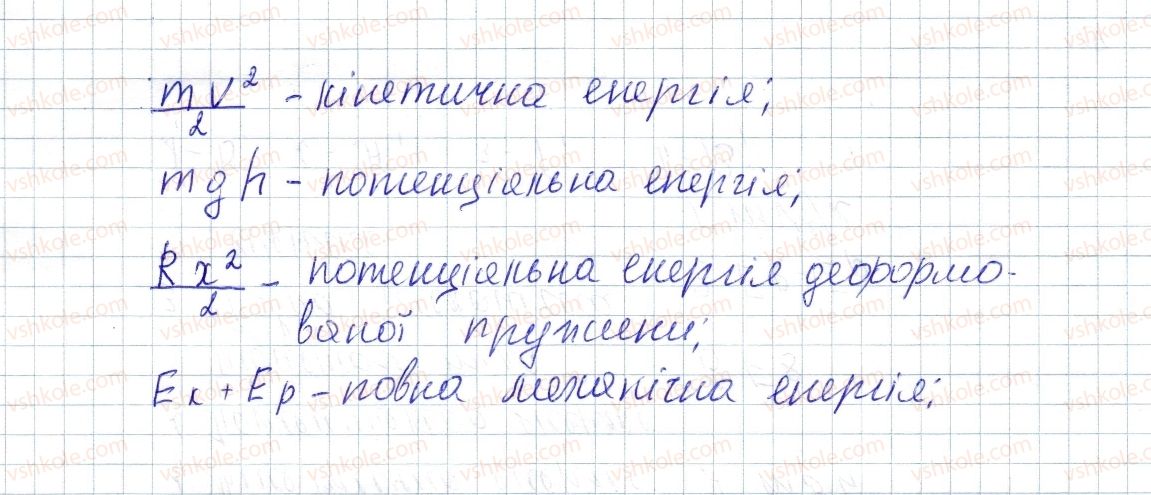 mv²/2 – кінетична енергія;
mgh – потенціальна енергія;
kx²/2 – потенціальна енергія деформо-
ваної пружини;
Eк + Ep – повна механічна енергія;